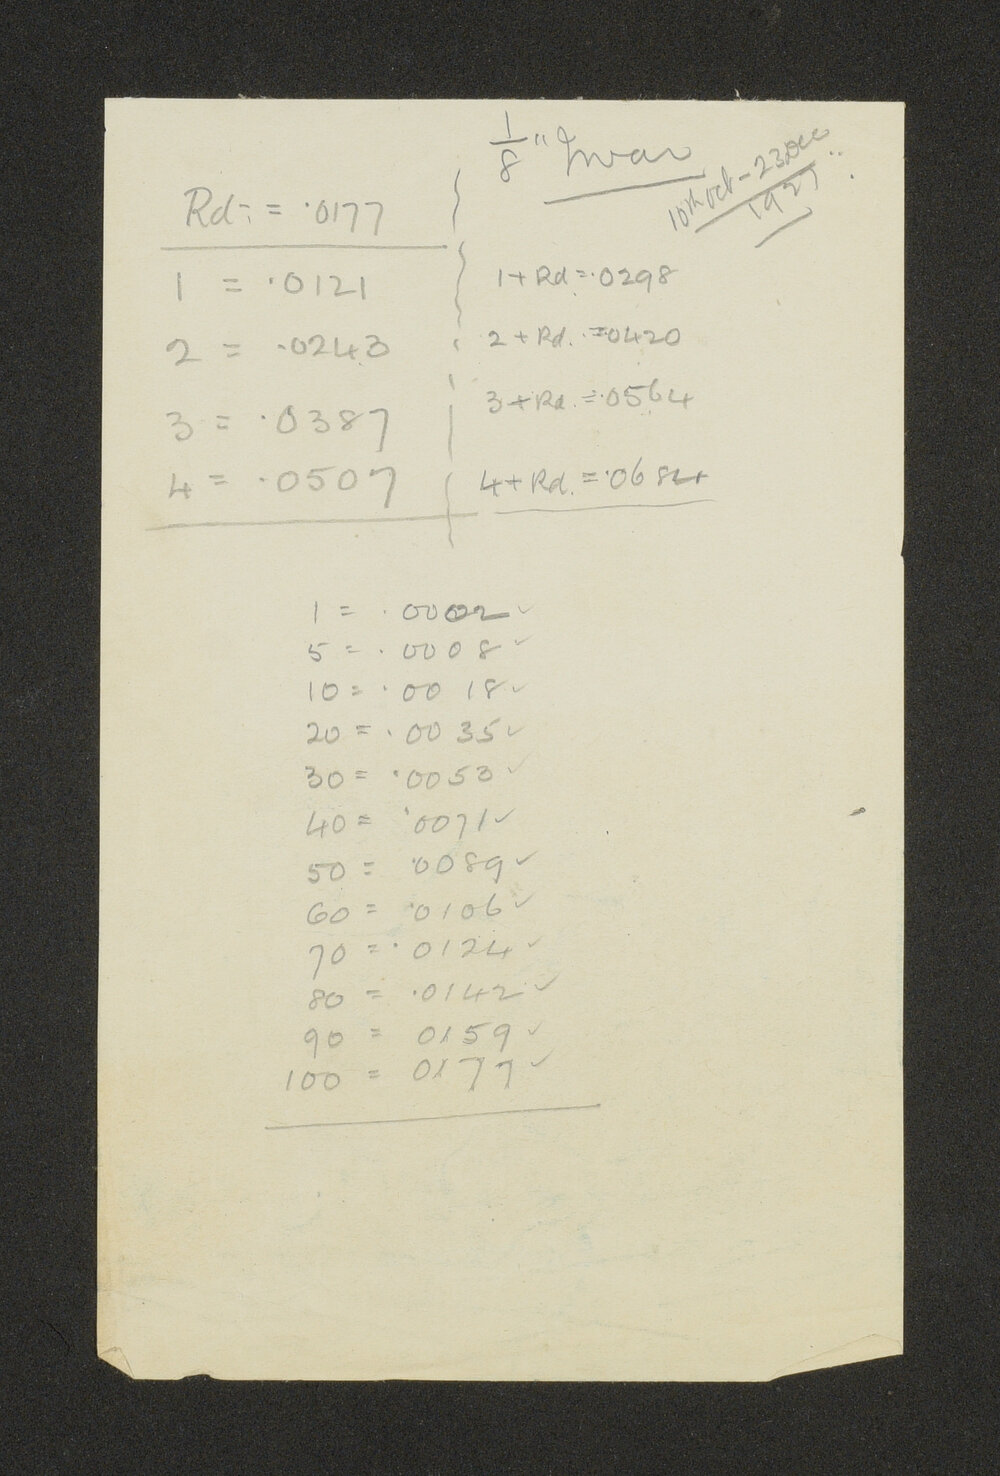 1/8" Invar
10th Oct - 23 Dec
1927
Rd: = .0177
1 = .0121
2 = .0243
3 = .0387
4 = .0507
1 + Rd = .0298
2 + Rd. = .0420
3 + Rd. = .0564
4 + Rd. = .0684
1 = .0002 ✓
5 = .0008 ✓
10 = .0018 ✓
20 = .0035 ✓
30 = .0053 ✓
40 = .0071 ✓
50 = .0089 ✓
60 = .0106 ✓
70 = .0124 ✓
80 = .0142 ✓
90 = 0159 ✓
100 = 0177 ✓